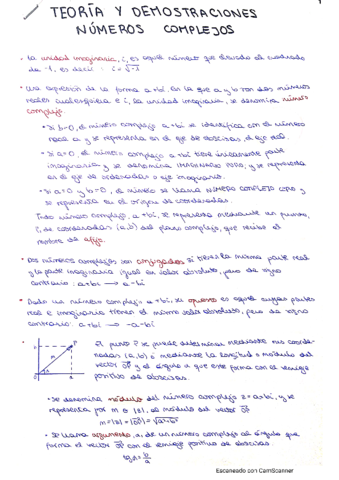 TEORÍA Y DEMOSTRACIONES
NÚMEROS COMPLEJOS
La unidad imaginaria, i, es aquel número que elevado al cuadrado
da -1, es decir: i=√-1
Una expresión de la forma a+bi, en la que a y b son dos números
reales cualesquiera e i, la unidad imaginaria, se denomina número
complejo.
• Si b=0, el número complejo a+bi se identifica con el número
real a y se representa en el eje de abscisas, el eje real.
• Si a=0 el número complejo a+bi tiene únicamente parte
imaginaria y se denomina IMAGINARIO PURO, y se representa
en el eje de ordenadas o eje imaginario.
• Si a=0 y b=0, el número se llama NÚMERO COMPLEJO CERO y
se representa en el origen de coordenadas.
Todo número complejo, a+bi, se representa mediante un punto,
P, de coordenadas (a,b) del plano complejo, que recibe el
nombre de afijo.
Dos números complejos son conjugados si tienen la misma parte real
y la parte imaginaria igual en valor absoluto, pero de signo
contrario: a+bi → a-bi
Dado un número complejo a+bi, su opuesto es aquel cuyas partes
real e imaginaria tienen el mismo valor absoluto, pero de signo
contrario: a+bi → -a-bi
El punto P se puede determinar mediante sus coorde-
nadas (a,b) o mediante la longitud o módulo del
vector OP y el ángulo α que este forma con el semieje
positivo de abscisas.
• Se denomina módulo del número complejo z=a+bi, y se
representa por m o |z|, al módulo del vector OP
m=|z|=|OP|=√a²+b²
• Se llama argumento, α, de un número complejo al ángulo que
forma el vector OP con el semieje positivo de abscisas
tgα=b/a
Escaneado con CamScanner